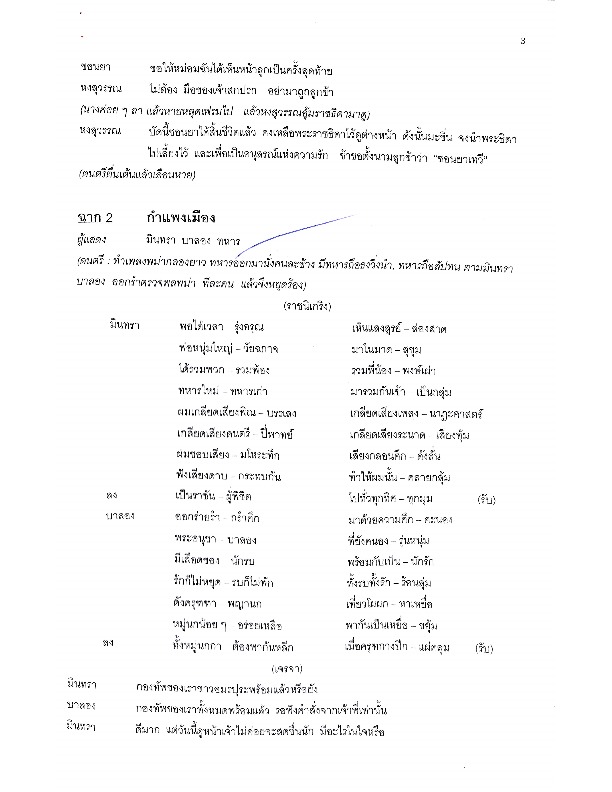 3
ซอนยา ขอให้หม่อมฉันได้เห็นหน้าลูกเป็นครั้งสุดท้าย
หงสุวรรณ ไม่ต้อง มือของเจ้าสกปรก อย่ามาถูกลูกข้า
(นางค่อย ๆ ลา แล้วหายหลุดเฟรมไป แล้วหงสุวรรณอุ้มราชธิดามาดู)
หงสุวรรณ บัดนี้ซอนยาได้สิ้นชีวิตแล้ว คงเหลือพระราชธิดาไว้ดูต่างหน้า ดังนั้นมะขิ่น จงนำพระธิดา
ไปเลี้ยงไว้ และเพื่อเป็นอนุสรณ์แห่งความรัก ข้าขอตั้งนามลูกข้าว่า "ซอนยาเทวี"
(ดนตรีตื่นเต้นแล้วเลือนหาย)
ฉาก 2 กำแพงเมือง
ผู้แสดง มินทรา บาลอง ทหาร
(ดนตรี : ทำเพลงพม่ากลองยาว ทหารออกมานั่งคนละข้าง มีทหารถือธงวิ่งนำ, ทหารถือสัปทน ตามมินทรา
บาลอง ออกรำตรวจพลพม่า ทีละคน แล้วจึงหยุดร้อง)
(ราชนิเกริง)
มินทรา พอได้เวลา รุ่งอรุณ เห็นแสงสุรย์ – ส่องสาด
พ่อหนุ่มใหญ่ – วัยฉกาจ มาในมาด – สุขุม
ได้รวมพวก รวมพ้อง รวมพี่น้อง – พงษ์เผ่า
ทหารใหม่ – ทหารเก่า มารวมกันเข้า เป็นกลุ่ม
ผมเกลียดเสียงพิณ – บรรเลง เกลียดเสียงเพลง – นาฏะศาสตร์
เกลียดเสียงดนตรี – ปี่พาทย์ เกลียดเสียงระนาด เสียงทุ้ม
ผมชอบเสียง – มโหระทึก เสียงกลองศึก – ดังลั่น
ฟังเสียงดาบ – กระทบกัน ทำให้ผมนั้น – คลายกลุ้ม
ลง เป็นราชัน – ผู้พิชิต ไปทั่วทุกทิศ – ทุกมุม (รับ)
บาลอง ออกร่ายรำ – กรำศึก มาด้วยความคึก – คะนอง
พระอนุชา – บาลอง ที่ยังคนอง – รุ่นหนุ่ม
มีเลือดของ นักรบ พร้อมกับเป็น – นักรัก
รักก็ไม่หยุด – รบก็ไม่พัก ทั้งรบทั้งรัก – ร้อนลุ่ม
ดังครุฑฑา พญานก เที่ยวโผผก – หาเหยื่อ
หมู่นกน้อย ๆ อร่อยเหลือ พากันเป็นเหยื่อ – ขยุ้ม
ลง ทั้งหมู่นกกา ต้องพากันหลีก เมื่อครุฑกางปีก – แผ่คลุม (รับ)
(เจรจา)
มินทรา กองทัพของเราชาวอมรปุระพร้อมแล้วหรือยัง
บาลอง กองทัพของเราทั้งหมดพร้อมแล้ว รอฟังคำสั่งจากเจ้าพี่เท่านั้น
มินทรา ดีมาก แต่วันนี้ดูหน้าเจ้าไม่ค่อยจะสดชื่นนัก มีอะไรในใจหรือ